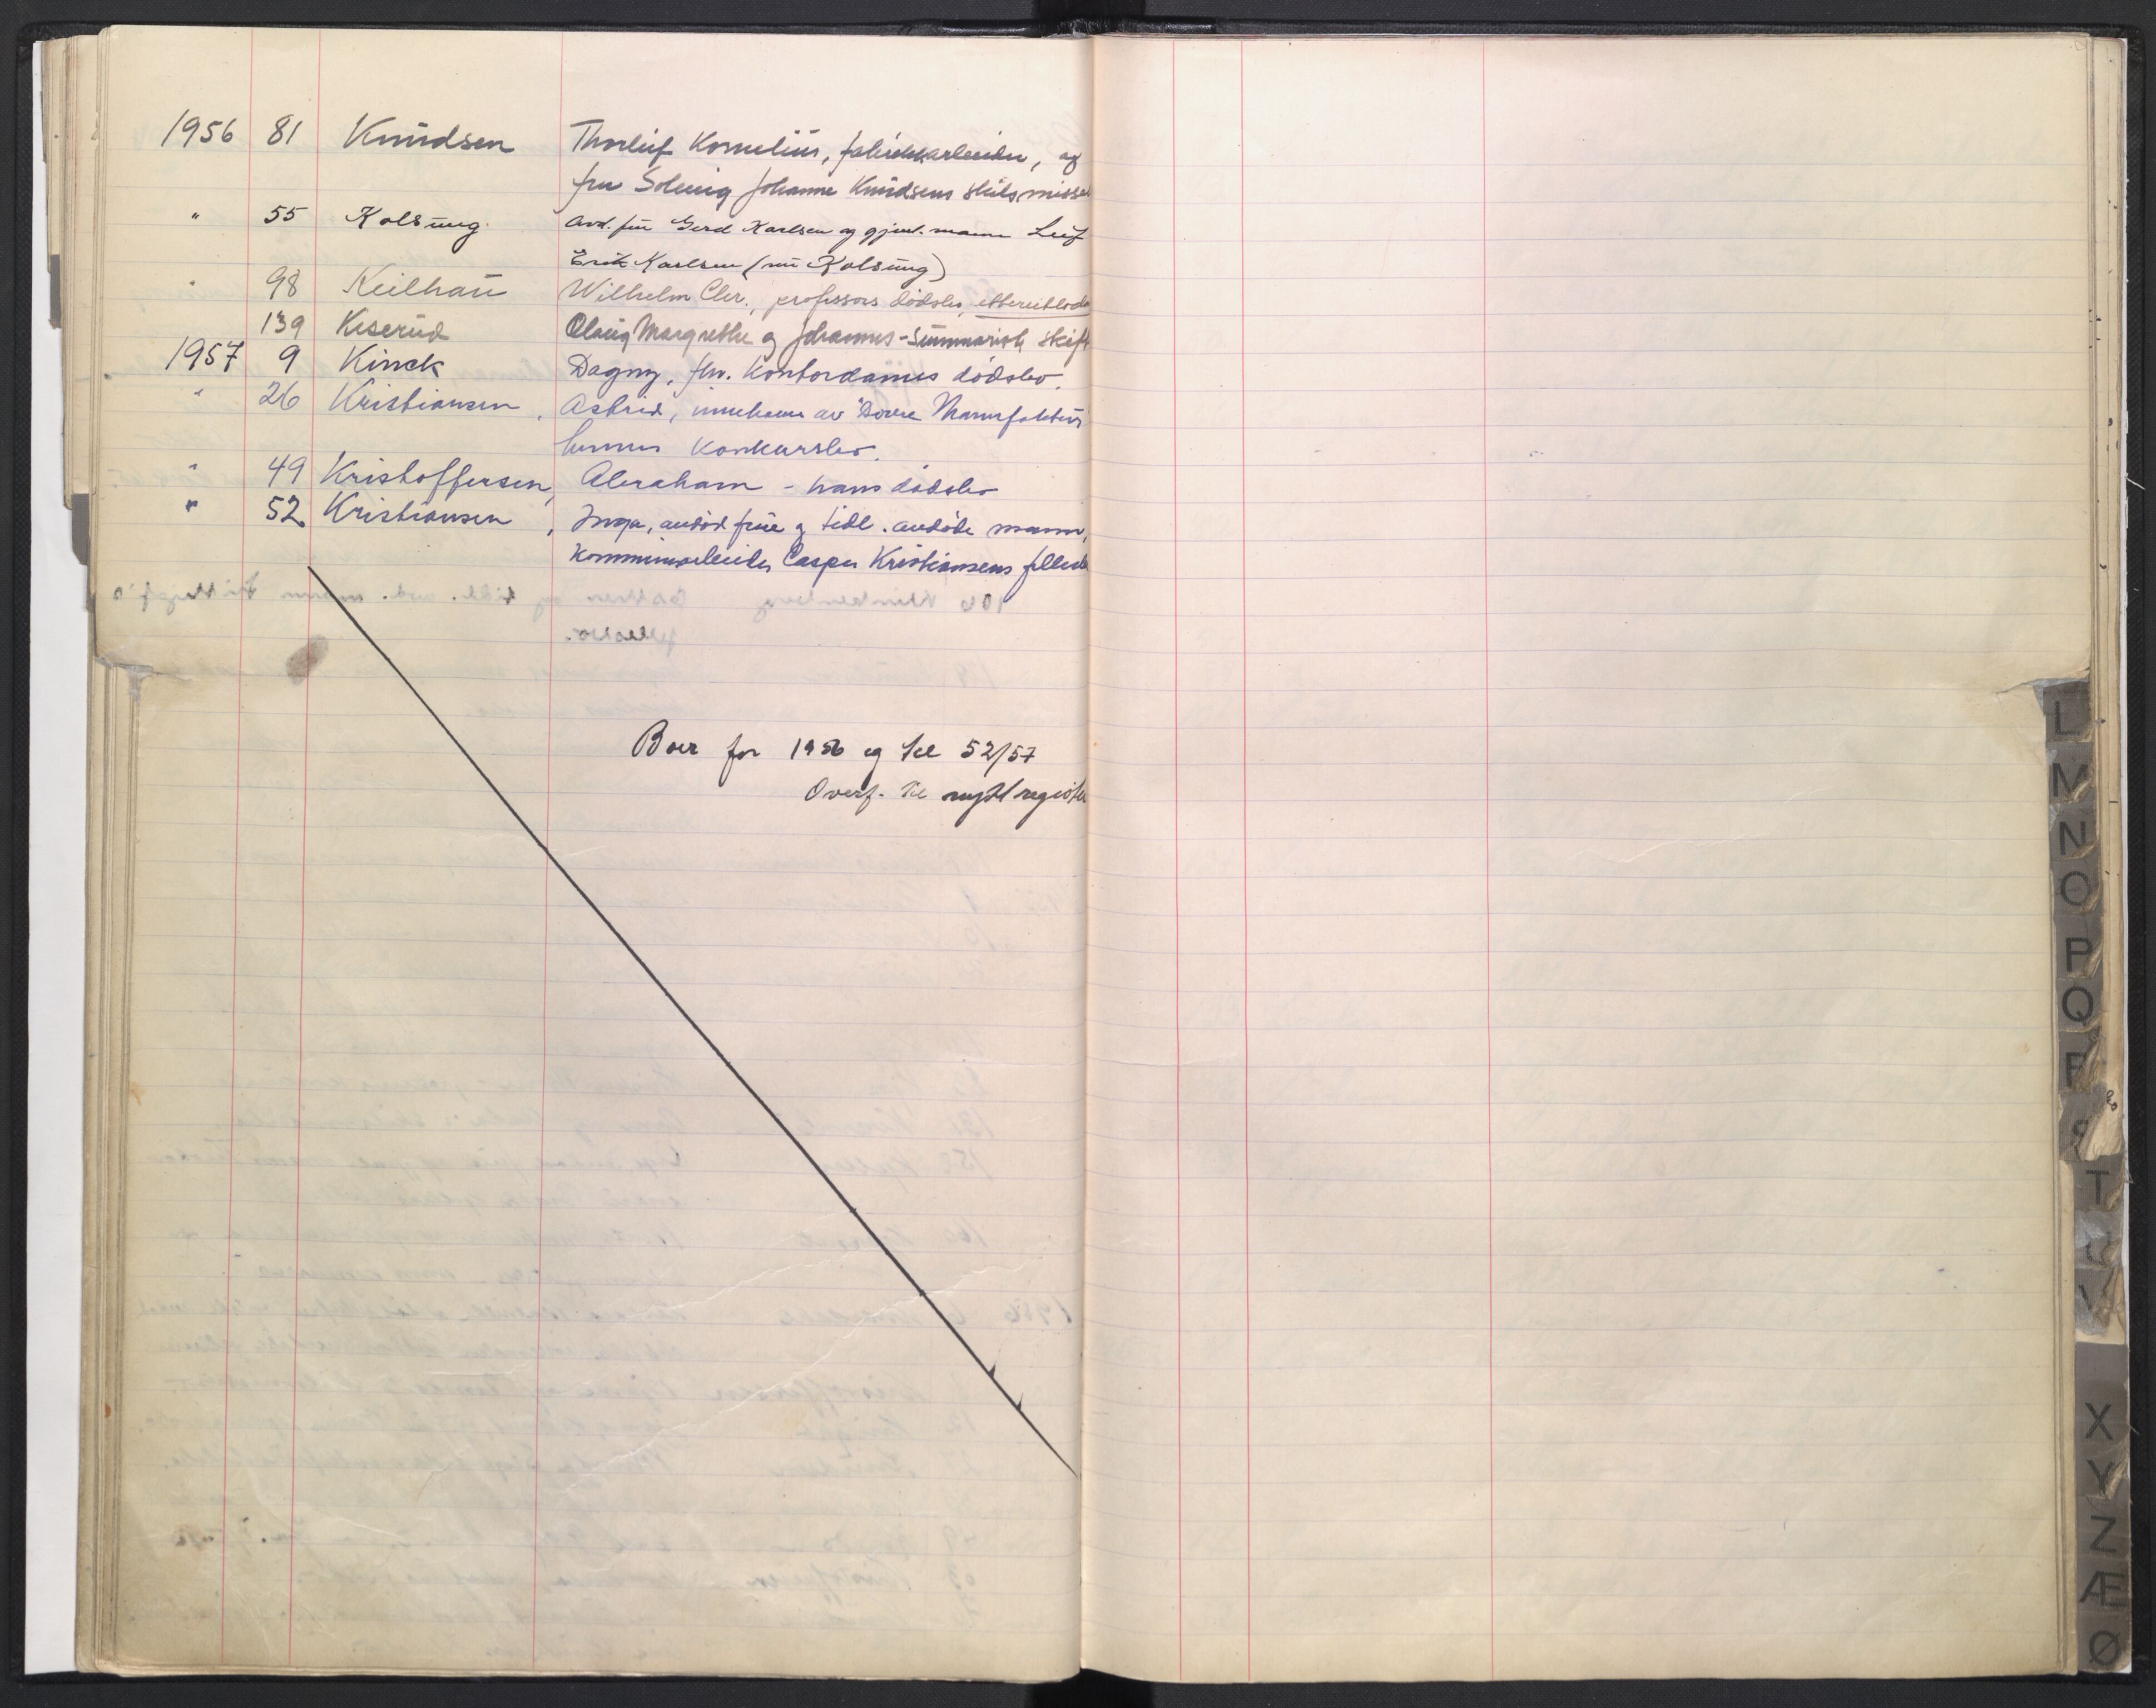 1956 81 Knudsen Thorleif Kornelius, fabrikkarbeider, og
fru Solveig Johanne Knudsens skilsmisse
" 55 Kolsung. Avd. fru Gerd Karlsen og gjenl. mann Leif
Erik Karlsen (nu Kolsung)
" 98 Keilhau Wilhelm Chr., professors dødsbo,
139 Kiserud Olaug Margrethe og Johannes - Summarisk skift
1957 9 Kinck Dagny, fhv. Kontordames dødsbo.
" 26 Kristiansen, Astrid, innehaver av "Dovre Manufaktur
hennes Konkursbo.
" 49 Kristoffersen, Abraham - hans dødsbo
" 52 Kristiansen, Inga, avdød frue og tidl. avdøde mann,
Kommunearbeider Casper Kristiansens felles
Boer for 1956 og til 52/57
Overf. til nytt register
L
M
N
O
P
Q
R
S
T
U
V
X
Y
Z
Æ
Ø